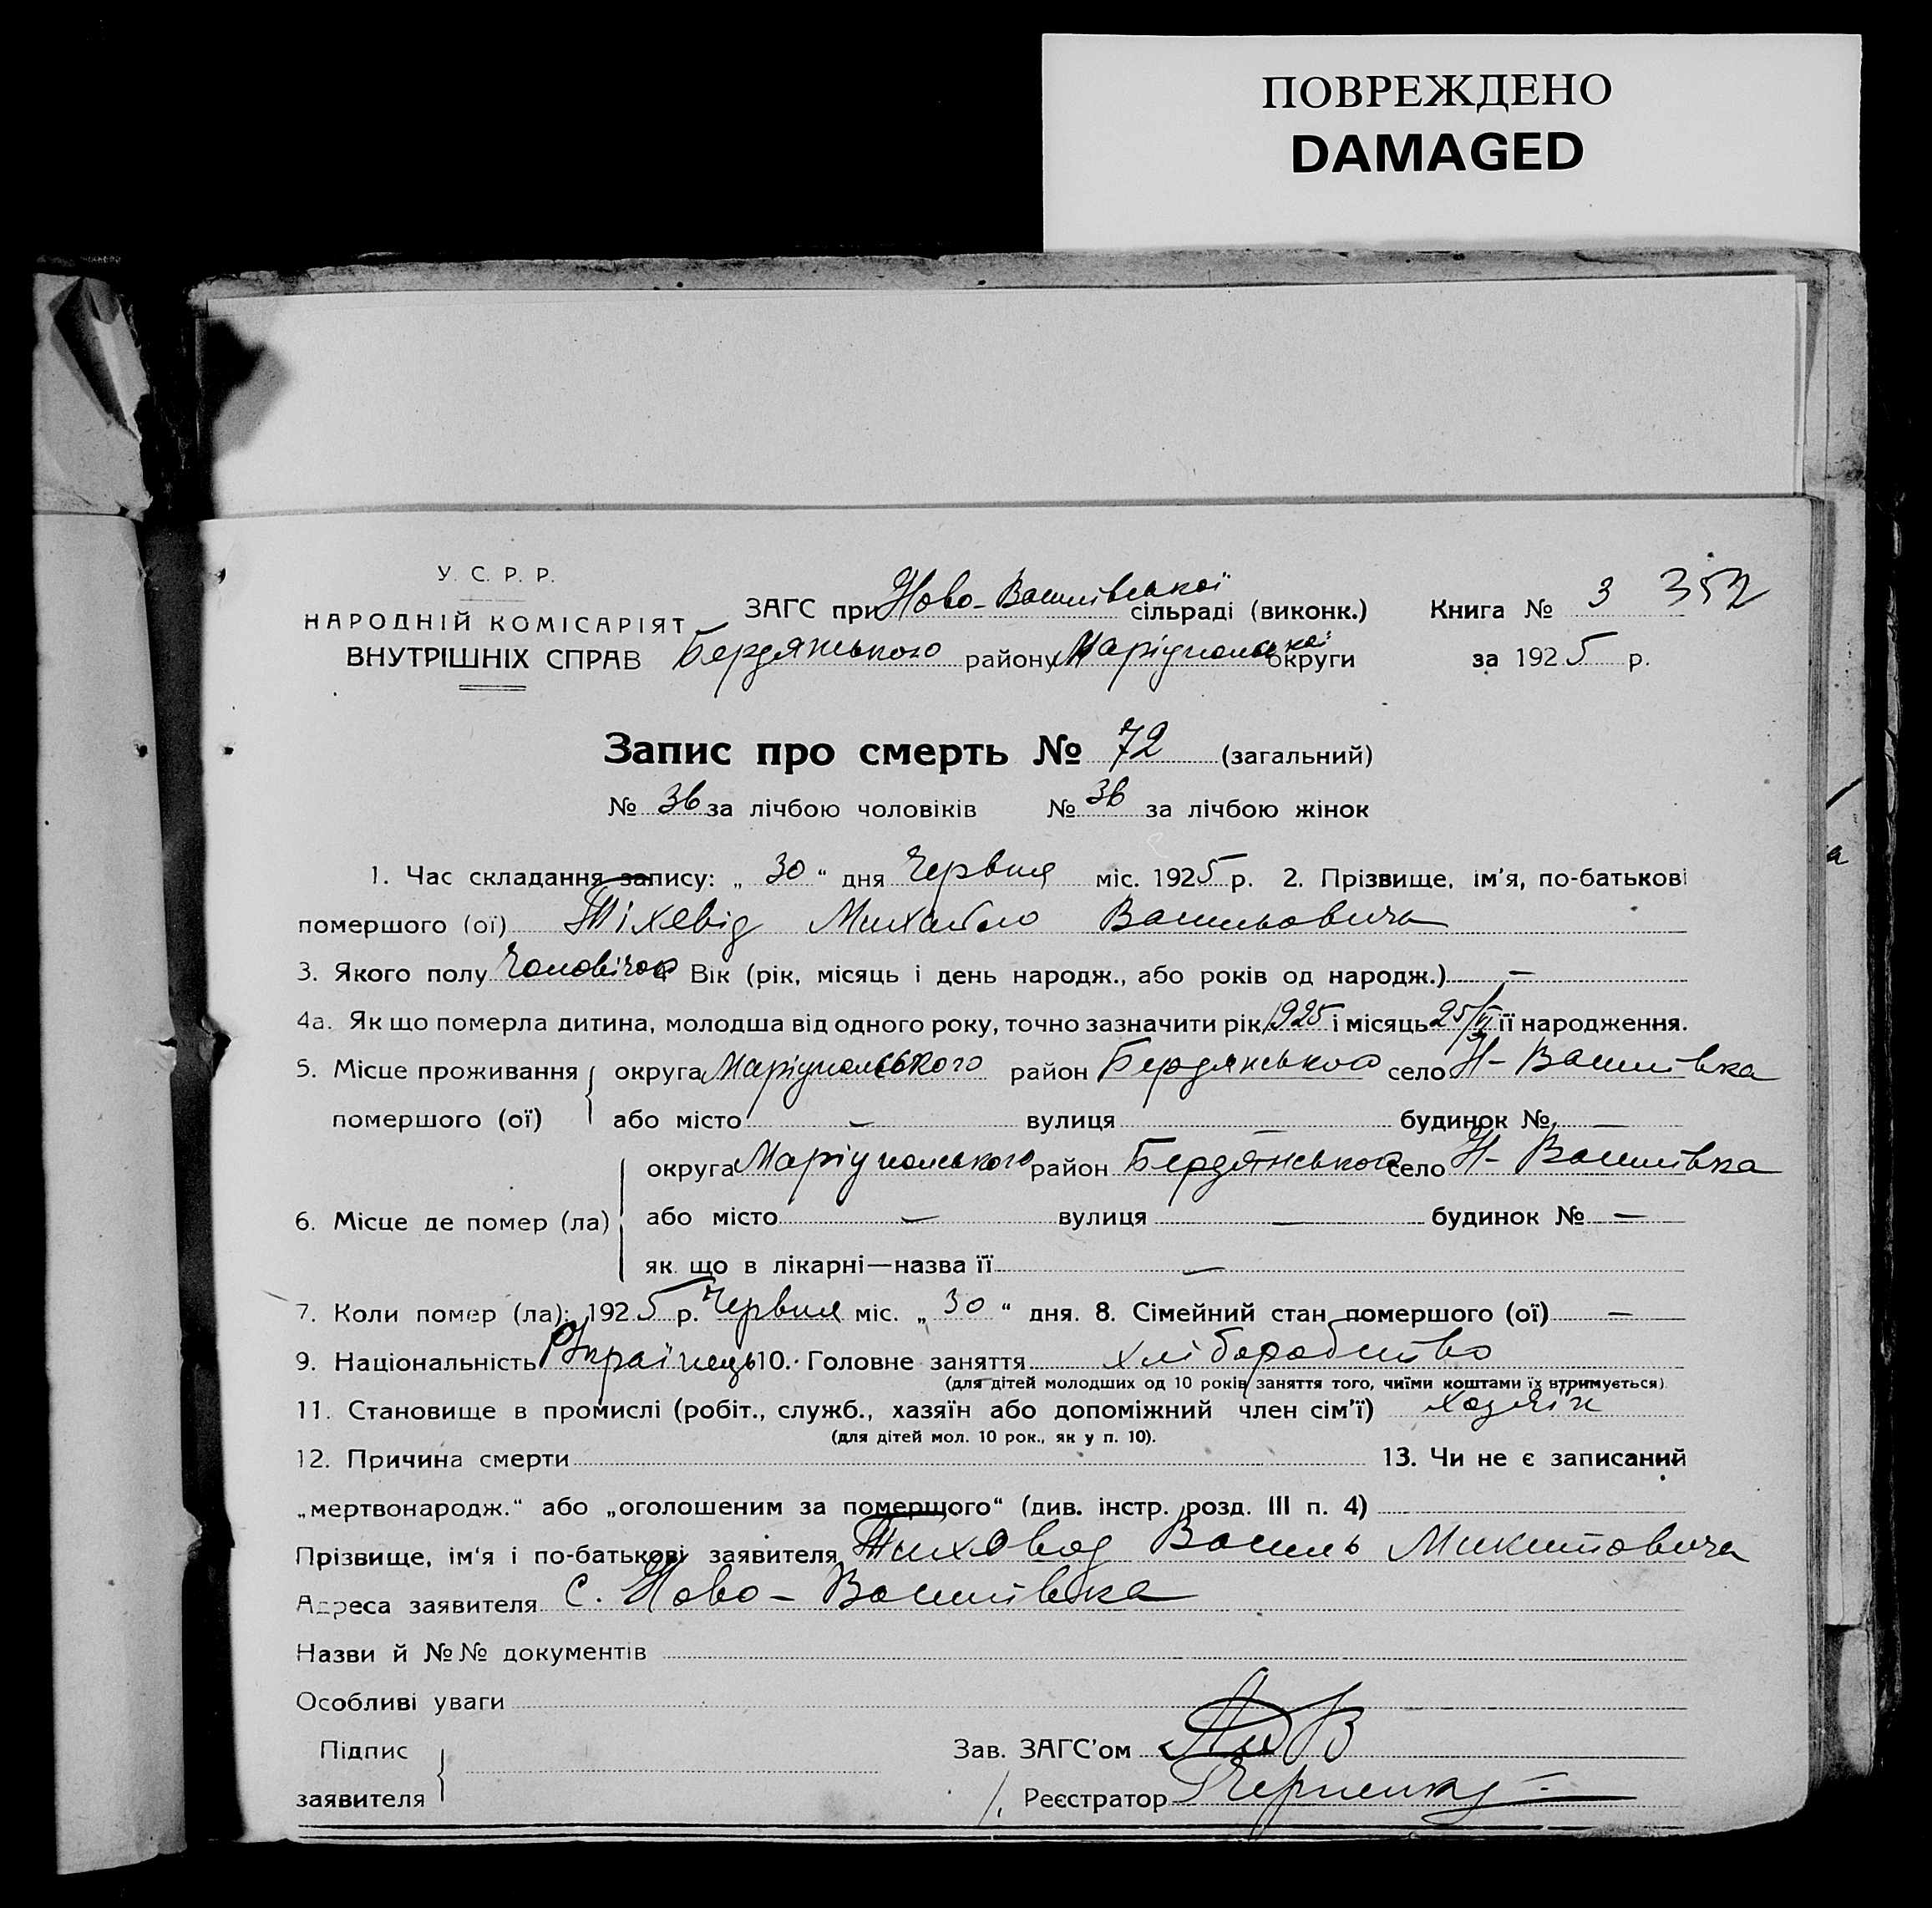 ПОВРЕЖДЕНО
DAMAGED
У. С. Р. Р.
НАРОДНІЙ КОМІСАРІЯТ
ВНУТРІШНІХ СПРАВ
ЗАГС при Ново-Василівської сільраді (виконк.) Книга № 3 352
Бердянського району Маріупольської округи за 1925 р.
Запис про смерть № 72 (загальний)
№ 36 за лічбою чоловіків № 36 за лічбою жінок
1. Час складання запису: „ 30 “ дня Червня міс. 1925 р. 2. Прізвище, ім'я, по-батькові
помершого (ої) Тіхевід Михайло Васильовича
3. Якого полу Чоловічог 4 Вік (рік, місяць і день народж., або років од народж.) —
4а. Як що померла дитина, молодша від одного року, точно зазначити рік 1925 і місяць 25/VI її народження.
5. Місце проживання округа Маріупольського район Бердянського село Н-Василівка
помершого (ої) або місто — вулиця — будинок № —
округа Маріупольського район Бердянського село Н-Василівка
6. Місце де помер (ла) або місто — вулиця — будинок № —
як що в лікарні—назва її —
7. Коли помер (ла): 1925 р. Червня міс. „ 30 “ дня. 8. Сімейний стан помершого (ої) —
9. Національність Українець 10. Головне заняття хліборобство
(для дітей молодших од 10 років заняття того, чиїми коштами їх втримується)
11. Становище в промислі (робіт., служб., хазяїн або допоміжний член сім'ї) хазяїн
(для дітей мол. 10 рок., як у п. 10).
12. Причина смерти 13. Чи не є записаний
„мертвонародж.“ або „оголошеним за померщого“ (див. інстр. розд. III п. 4)
Прізвище, ім'я і по-батькові заявителя Тиховод Василь Микитовича
Адреса заявителя с. Ново-Василівка
Назви й №№ документів
Особливі уваги
Підпис
заявителя
Зав. ЗАГС'ом
Реєстратор